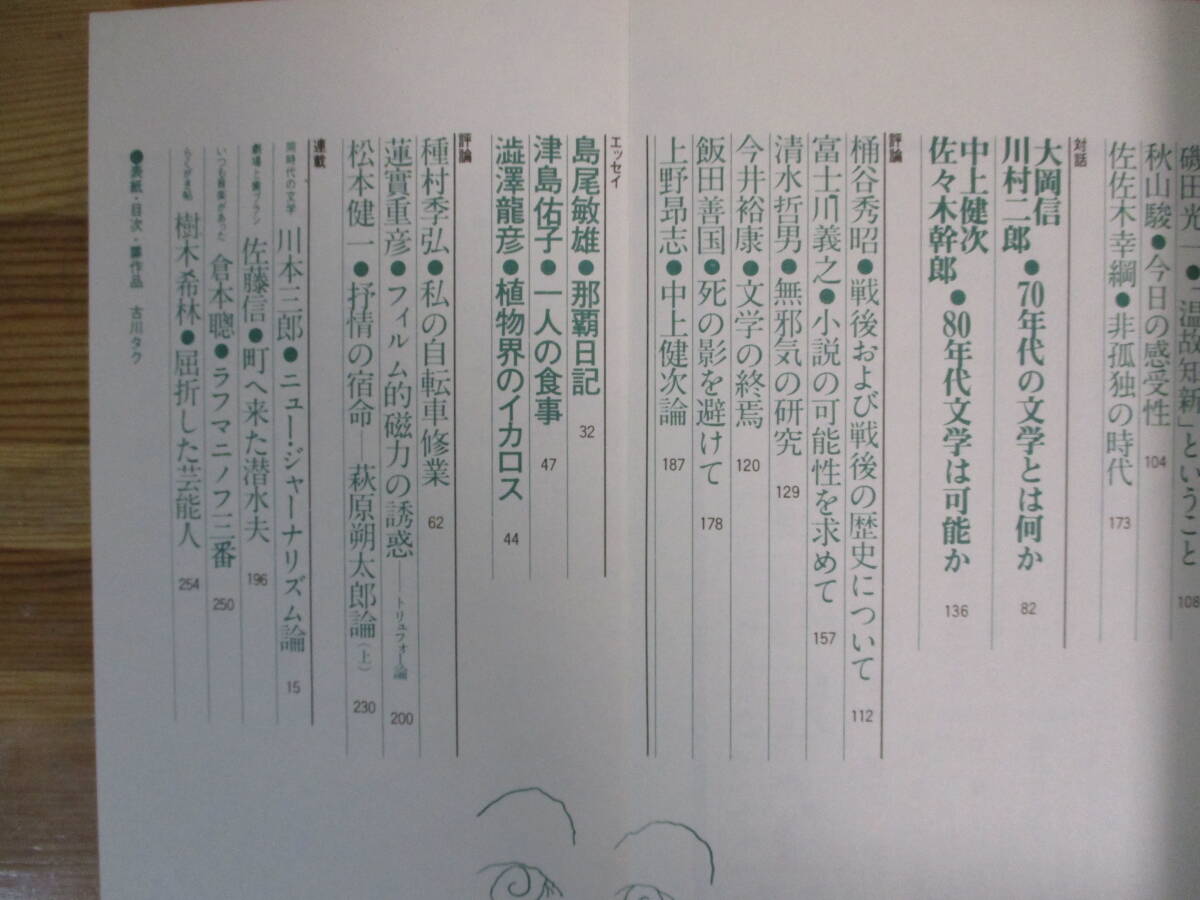 磯田光一●「温故知新」ということ 108
秋山駿●今日の感受性 104
佐佐木幸綱●非孤独の時代 173
対話
大岡信
川村二郎●70年代の文学とは何か 82
中上健次
佐々木幹郎●80年代文学は可能か 136
評論
桶谷秀昭●戦後および戦後の歴史について 112
富士川義之●小説の可能性を求めて 157
清水哲男●無邪気の研究 129
今井裕康●文学の終焉 120
飯田善国●死の影を避けて 178
上野昻志●中上健次論 187
エッセイ
島尾敏雄●那覇日記 32
津島佑子●一人の食事 47
澁澤龍彥●植物界のイカロス 44
評論
種村季弘●私の自転車修業 62
蓮實重彥●フィルム的磁力の誘惑──トリュフォー論 200
松本健一●抒情の宿命──萩原朔太郎論(上) 230
連載
同時代の文学 川本三郎●ニュー・ジャーナリズム論 15
佐藤信●町へ来た潜水夫 196
いつも音楽があった 倉本聰●ラフマニノフ三番 250
らくがき帖 樹木希林●屈折した芸能人 254
●表紙・目次・扉作品 古川タク